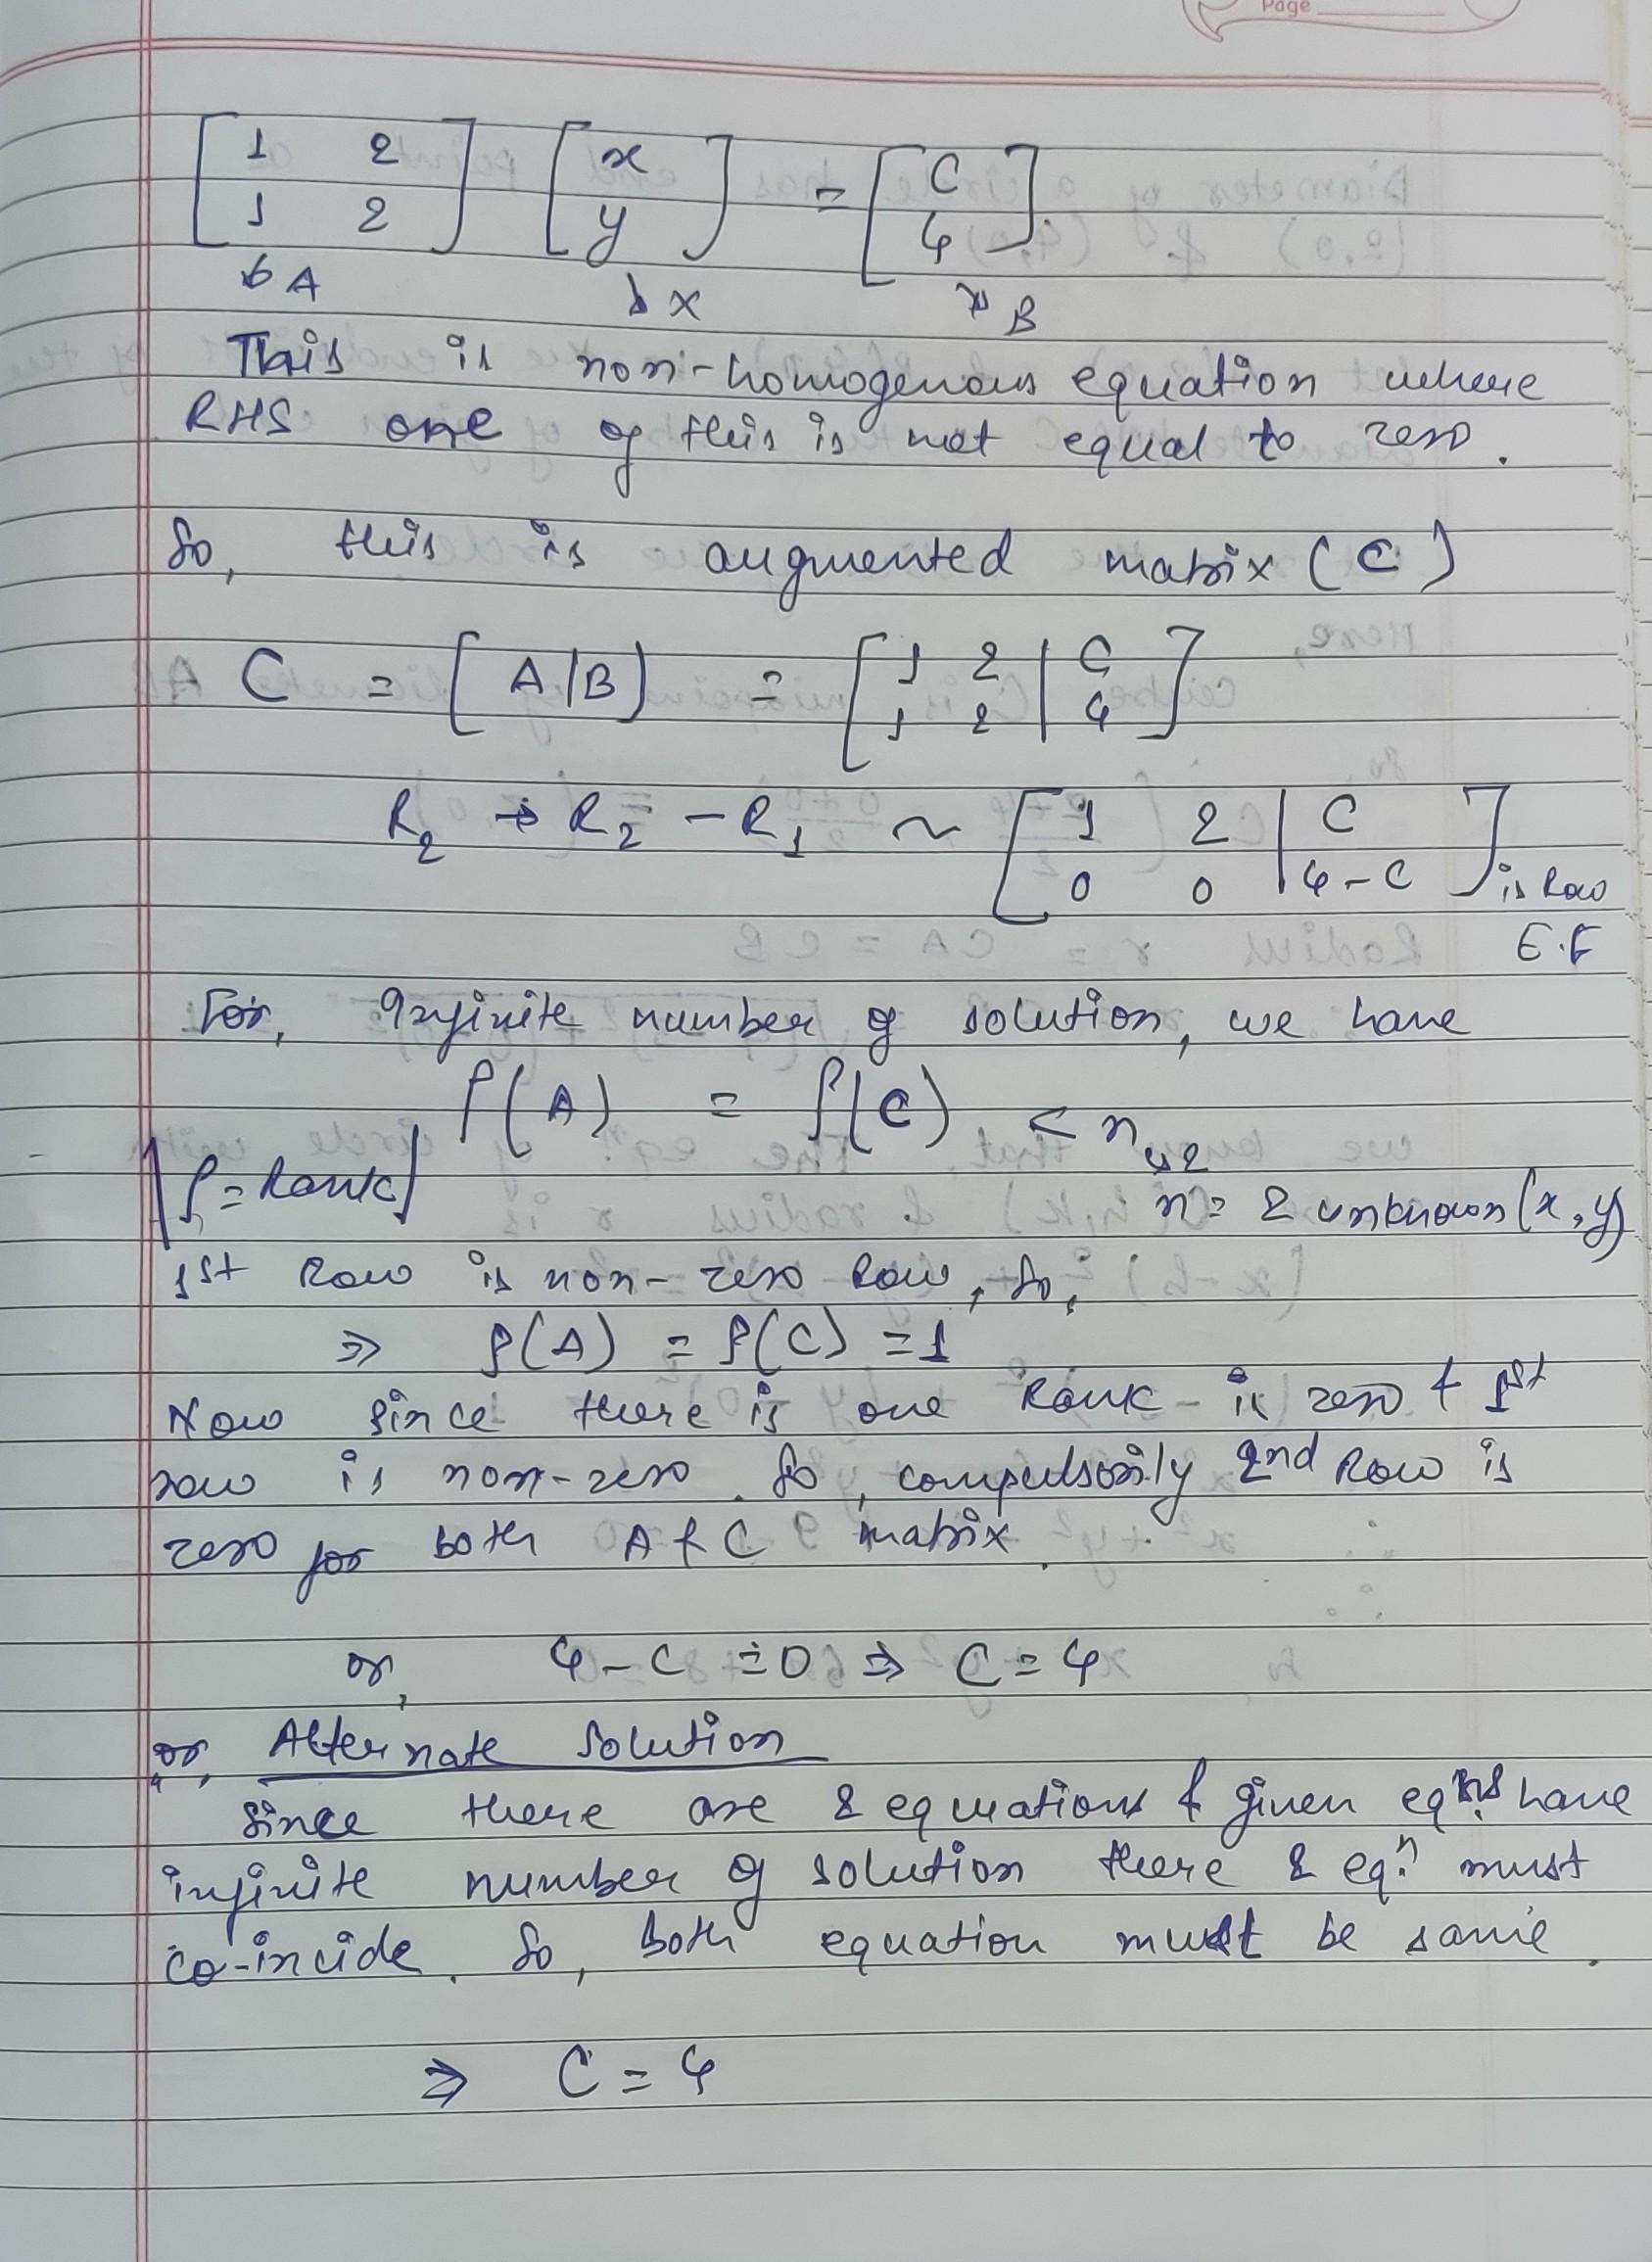 Page
[1 2
1 2] [x
y] = [C
4]
↳ A ↳ X ↳ B
This is non-homogenous equation where
RHS one of this is not equal to zero.
So, this is augmented matrix (C)
C = [A|B] = [1 2 | C
1 2 | 4]
R₂ → R₂ - R₁ ~ [1 2 | C
0 0 | 4-C] is Row
E.F
For, Infinite number of solution, we have
ρ(A) = ρ(C) < n
↳2
|ρ = Rank| n = 2 unknown (x, y)
1st Row is non-zero Row, So,
⇒ ρ(A) = ρ(C) = 1
Now since there is one Rank - is zero & 1st
row is non-zero. So, compulsorily 2nd Row is
zero for both A & C matrix.
or, 4 - C = 0 ⇒ C = 4
or, Alternate Solution
Since there are 2 equations & given eqns have
infinite number of solution there 2 eqn must
co-incide. So, both equation must be same.
⇒ C = 4